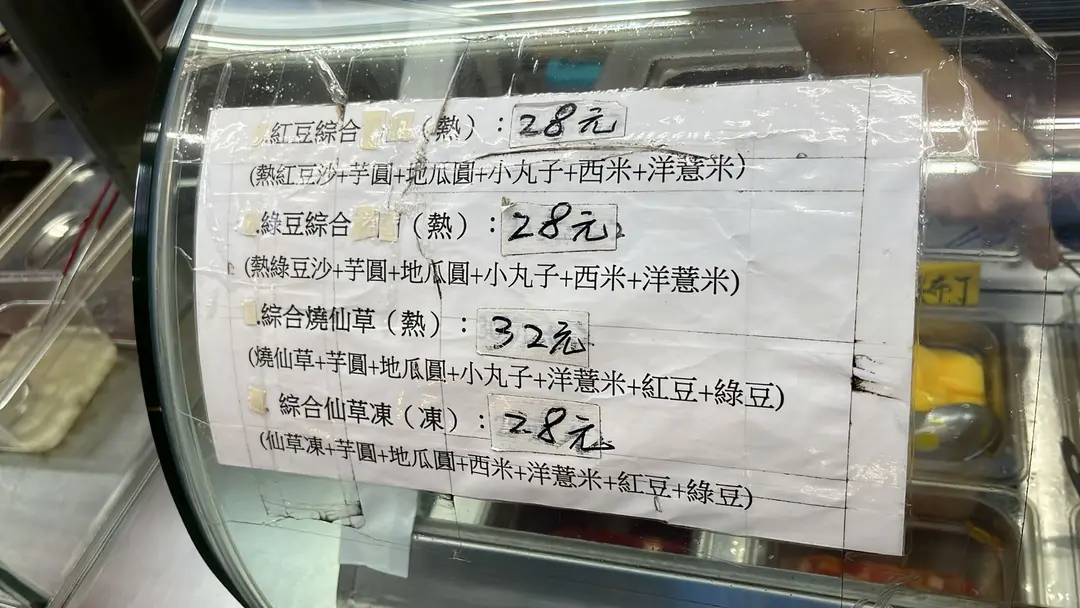 .紅豆綜合（熱）：28元
(熱紅豆沙+芋圓+地瓜圓+小丸子+西米+洋薏米)
.綠豆綜合（熱）：28元
(熱綠豆沙+芋圓+地瓜圓+小丸子+西米+洋薏米)
.綜合燒仙草（熱）：32元
(燒仙草+芋圓+地瓜圓+小丸子+洋薏米+紅豆+綠豆)
綜合仙草凍（凍）：28元
(仙草凍+芋圓+地瓜圓+西米+洋薏米+紅豆+綠豆)